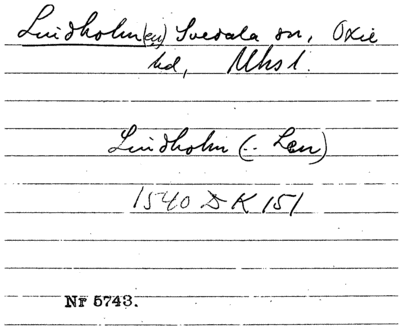 Lindholm(en) Svedala sn, Oxie
hd, Mhsl.
Lindholm (.. Len)
1540 DK 151
Nr 5743.